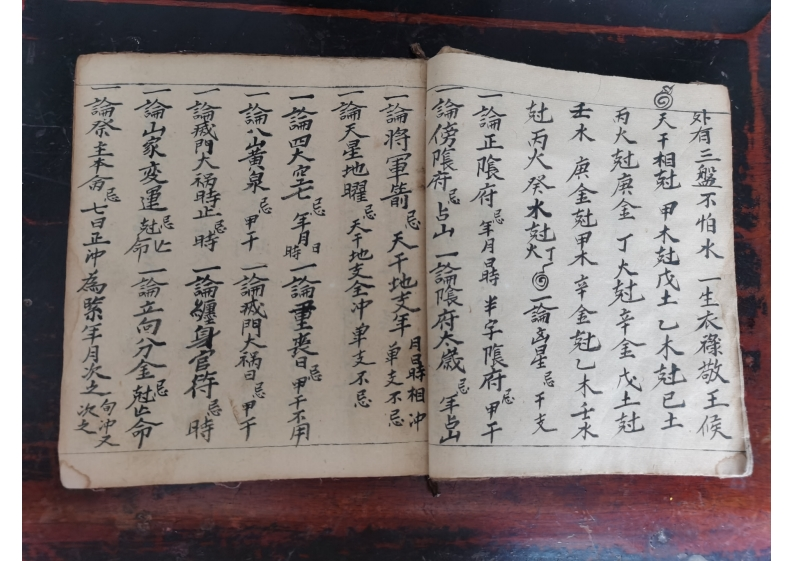 外有三盤不怕水 一生衣祿敬王侯
天干相尅 甲木尅戊土 乙木尅己土
丙火尅庚金 丁火尅辛金 戊土尅
壬水 庚金尅甲木 辛金尅乙木 壬水
尅丙火 癸水尅丁火 一論凶星忌干支
一論正陰府 年月日時 半字陰府忌甲干
一論傍陰府忌占山 一論陰府太歲忌年占山
一論將軍箭忌 天干地支年月日時相冲 单支不忌
一論天星地曜忌 天干地支全冲 单支不忌
一論四大空亡忌年月日時 一論重喪日忌甲干不用
一論八山黄泉忌甲干 一論滅門大祸日忌甲干
一論滅門大祸時止忌時 一論纏身官符忌時
一論山家变運忌尅山命 一論立向分金忌尅山命
一論祭主本命忌 七日正冲為緊 年月次之 一旬冲又次之